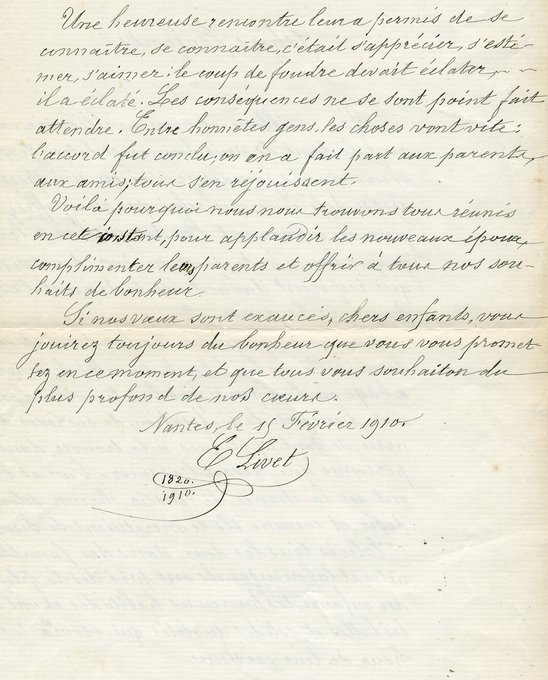 Une heureuse rencontre leur a permis de se
connaître, se connaître, c'était s'apprécier, s'esti-
mer, s'aimer : le coup de foudre devait éclater,
il a éclaté. Les conséquences ne se sont point fait
attendre. Entre honnêtes gens, les choses vont vite :
l'accord fut conclu, on en a fait part aux parents,
aux amis ; tous s'en réjouissent.
Voilà pourquoi nous nous trouvons tous réunis
en cet instant, pour applaudir les nouveaux époux,
complimenter les parents et offrir à tous nos sou-
haits de bonheur.
Si nos vœux sont exaucés, chers enfants, vous
jouirez toujours du bonheur que vous vous promet-
tez en ce moment, et que tous vous souhaiton du
plus profond de nos cœurs.
Nantes, le 15 Février 1910.
E Livet
1820.
1910.